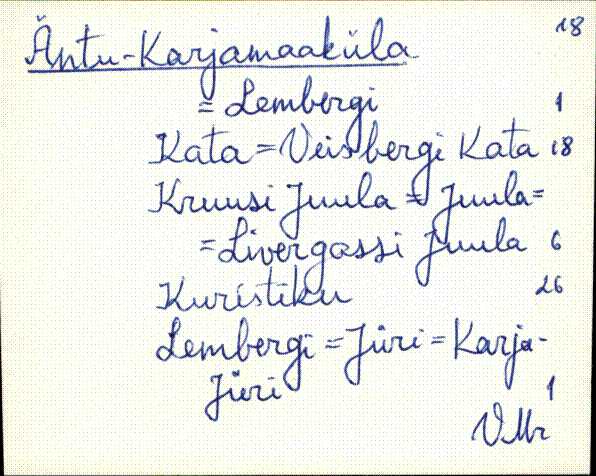 Äntu-Karjamaaküla 18
= Lembergi 1
Kata = Veisbergi Kata 18
Kruusi Juula = Juula =
= Livergassi Juula 6
Kuristiku 26
Lembergi = Jüri = Karja-
Jüri 1
VMr